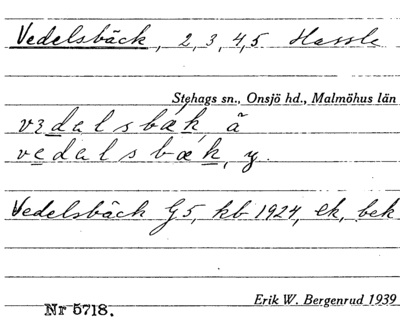 Vedelsbäck, 2, 3, 4, 5. Hassle
Stehags sn., Onsjö hd., Malmöhus län
vedalsbäk, ä
vedalsbæk, y.
Vedelsbäck G 5, kb 1924, ek, bek
Erik W. Bergenrud 1939
Nr 5718.